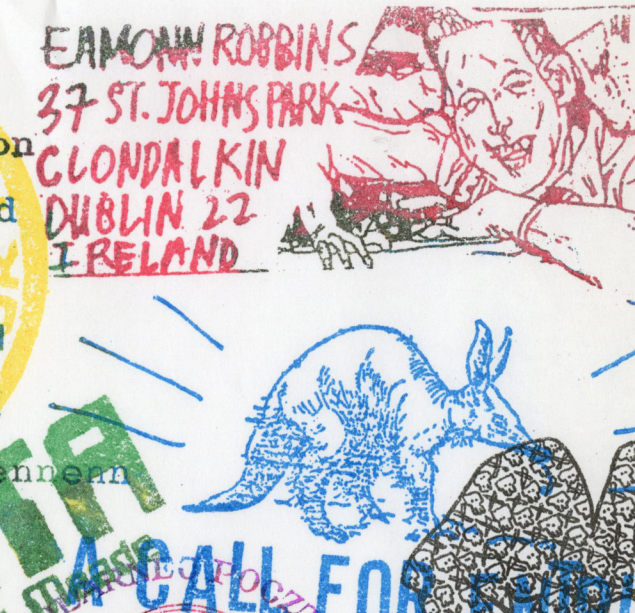 EAMONN ROBBINS
37 ST. JOHNS PARK
on
CLONDALKIN
d
DUBLIN 22
IRELAND
ennenn
TA
A CALL FOR